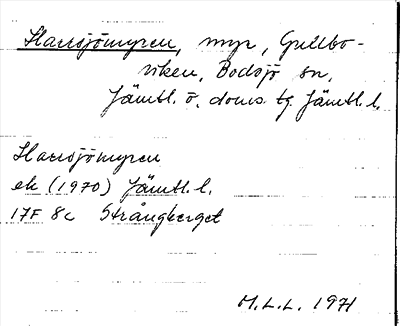 Harrsjömyren, myr, Gullbo-
viken, Bodsjö sn,
Jämtl. ö. doms. tg. Jämtl. l.
Harrsjömyren
ek (1970) Jämtl. l.
17F 8c Strångberget
M.L.L. 1971